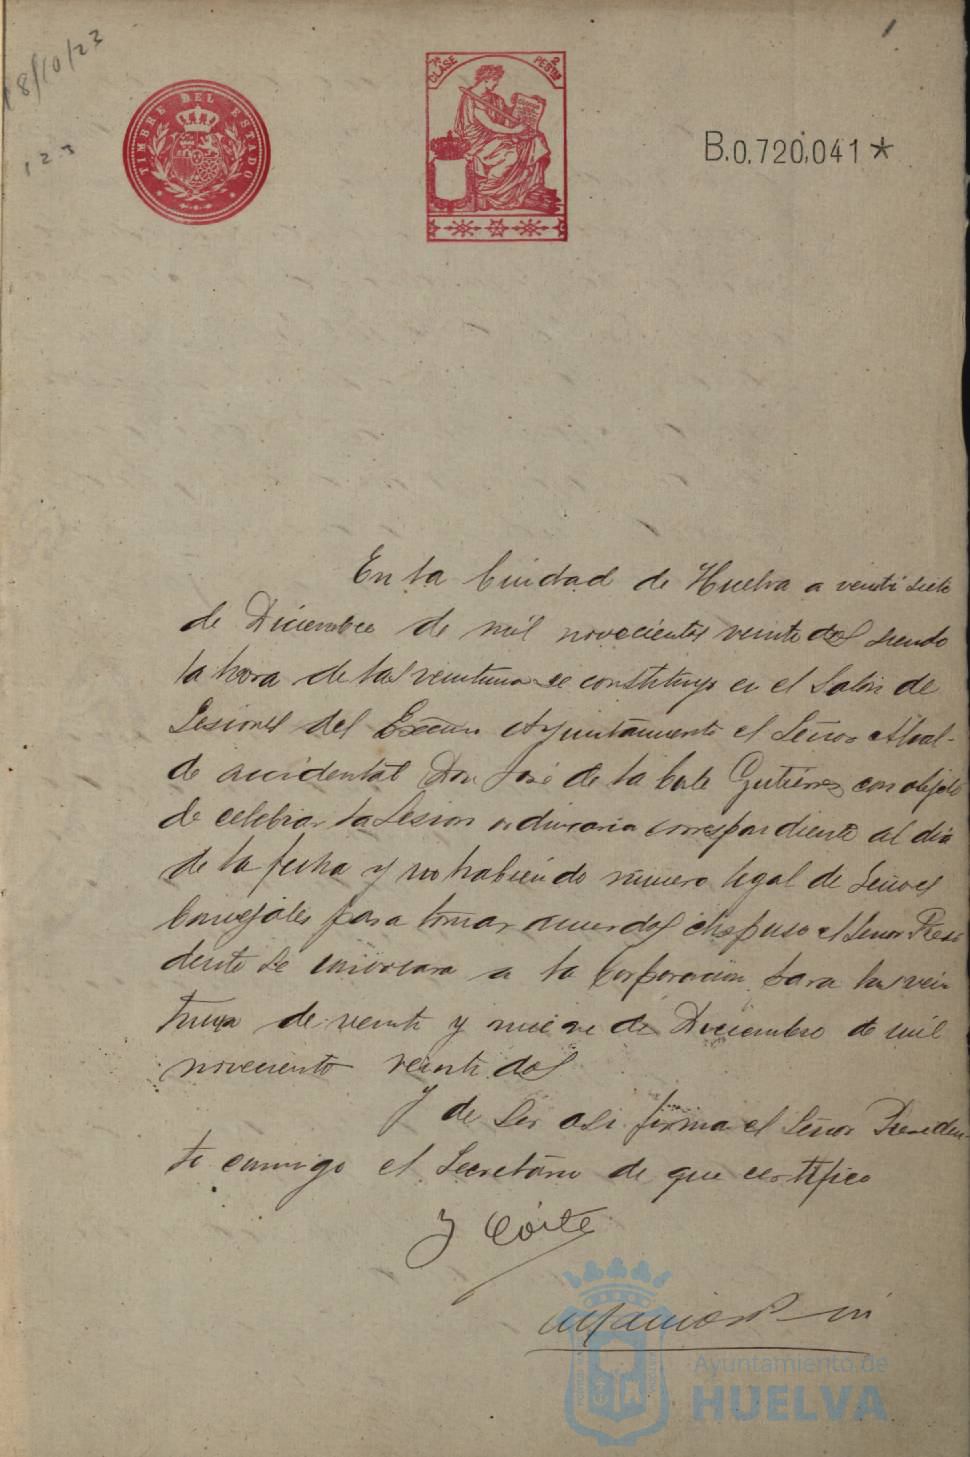 18/10/23
1
123
TIMBRE DEL ESTADO
7ª CLASE 2 PESTAS
B.0.720.041 *
En la Ciudad de Huelva a veinti siete
de Diciembre de mil novecientos veinte dos siendo
la hora de las veintiuna se constituyo en el Salon de
Sesiones del Excmo Ayuntamiento el Señor Alcal-
de accidental Don José de la Corte Gutierrez con objeto
de celebrar la Sesion ordinaria correspondiente al dia
de la fecha y no habiendo numero legal de Señores
Concejales para tomar acuerdos dispuso el Señor Presi
dente se convocara a la Corporacion para las vein
tiuna de veinti y nueve de Diciembre de mil
noveciento veinti dos
Y de ser asi firma el Señor Presiden-
te conmigo el Secretario de que certifico
J Corte
Ayuntamiento de
HUELVA